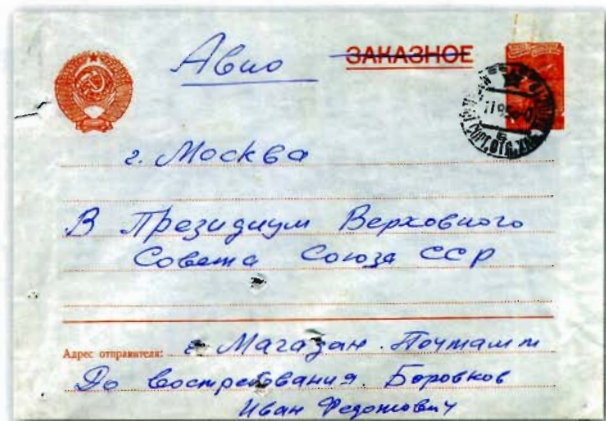 Авио ЗАКАЗНОЕ
г. Москва
В Президиум Верховного
Совета Союза ССР
Адрес отправителя: г. Магадан. Почтамт
До востребования. Боровков
Иван Федотович